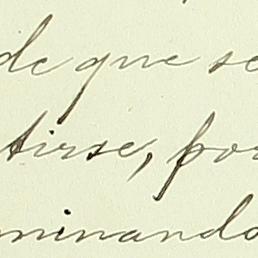 de que se
tirse, por
minando